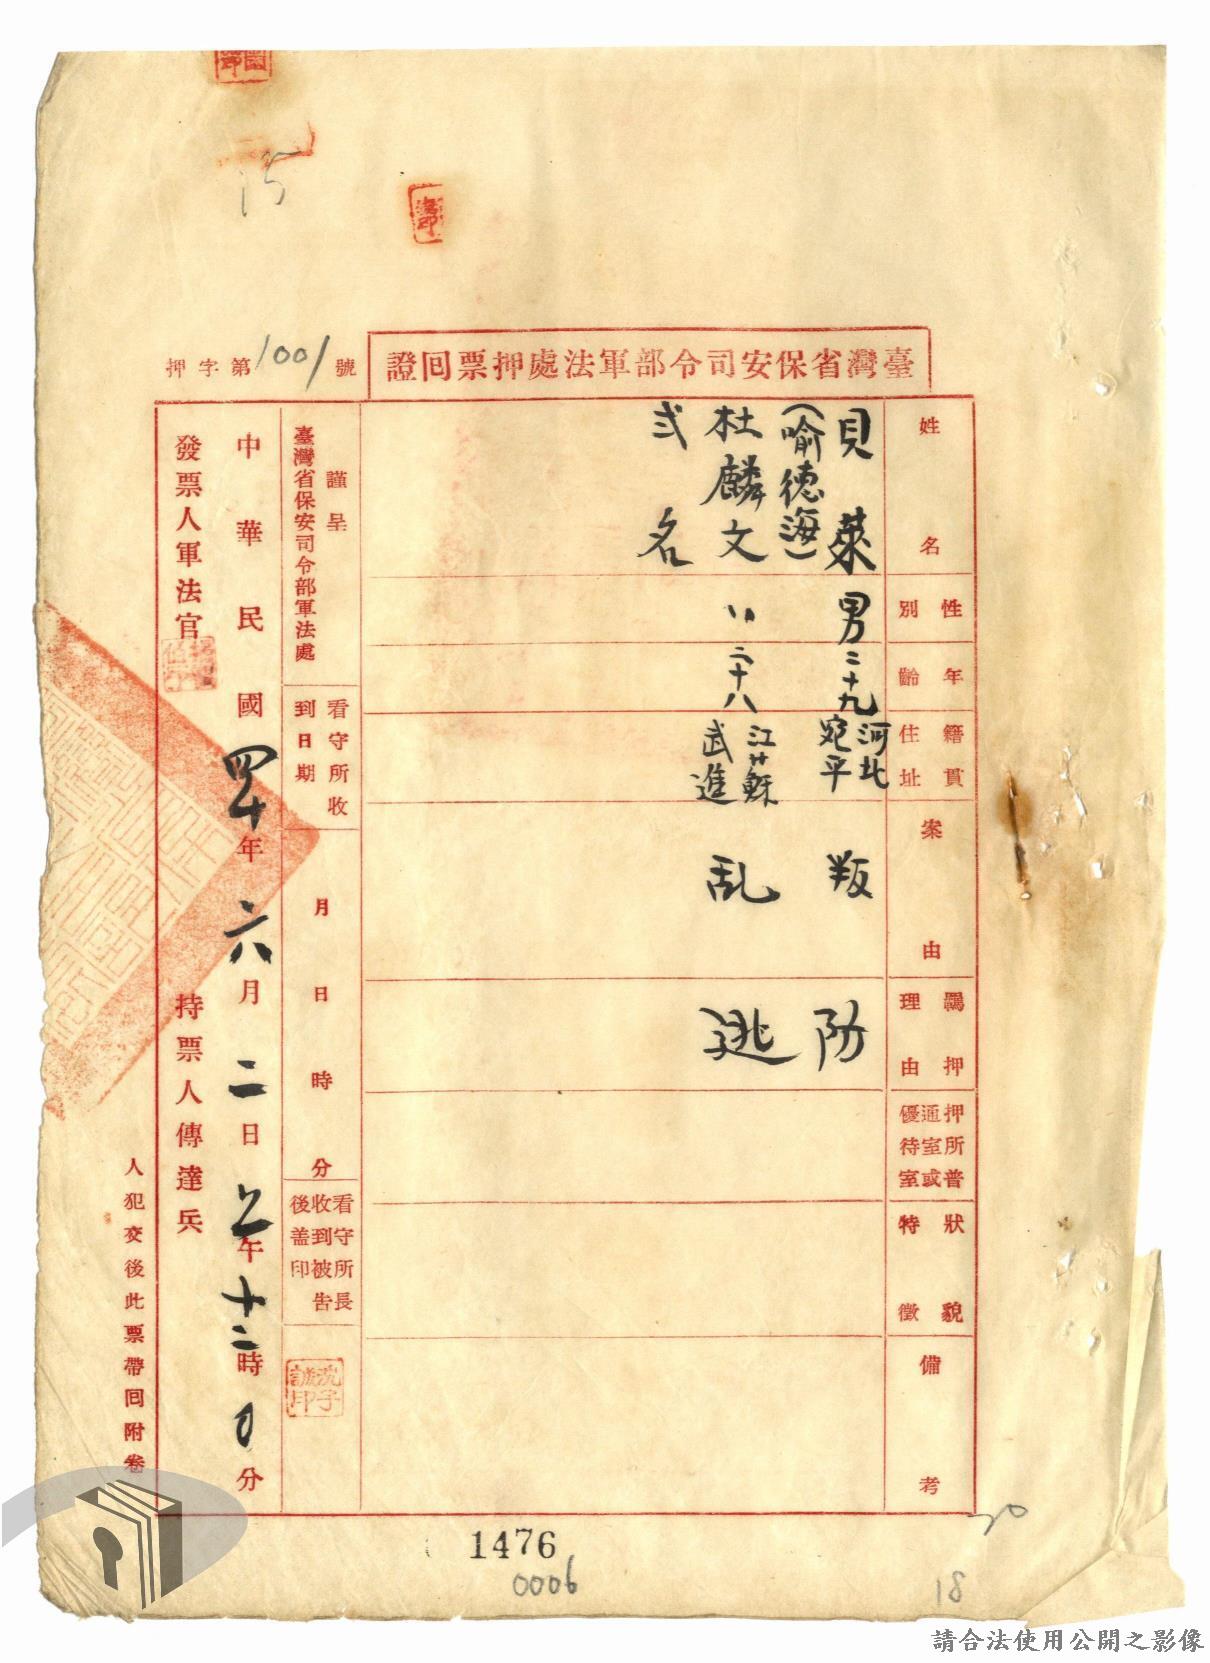 15
臺灣省保安司令部軍法處押票回證
押字第1001號
姓名
貝萊
(喻德海)
杜麟文
弍名
性別
男
〃
年齡
二十九
二十八
籍貫
住址
河北
宛平
江蘇
武進
案由
叛
乱
羈押
理由
防
逃
押所普
通室或
優待室
狀貌
特徵
備考
謹呈
臺灣省保安司令部軍法處
看守所收
到日期
月日時分
看守所長
收到被告
後盖印
沈子
誠印
中華民國四十年六月二日上午十二時0分
發票人軍法官
持票人傳達兵
人犯交後此票帶回附卷
1476
0006
20
18
請合法使用公開之影像